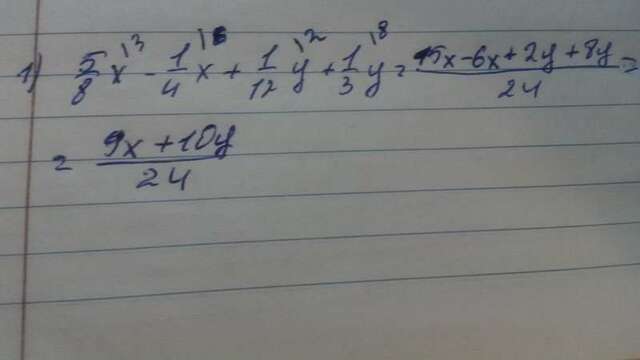 1) 5/8 x\3 - 1/4 x\6 + 1/12 y\2 + 1/3 y\8 = 15x-6x+2y+8y/24 =
= 9x+10y/24